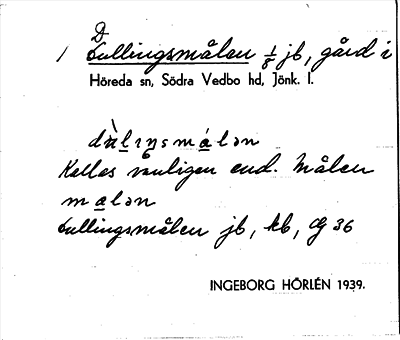 D
/ Lullingsmålen 1/8 jb, gård i
Höreda sn, Södra Vedbo hd, Jönk. l.
Kallas vanligen end. Målen
malən
Lullingsmålen jb, kb, Cg 36
INGEBORG HÖRLÉN 1939.